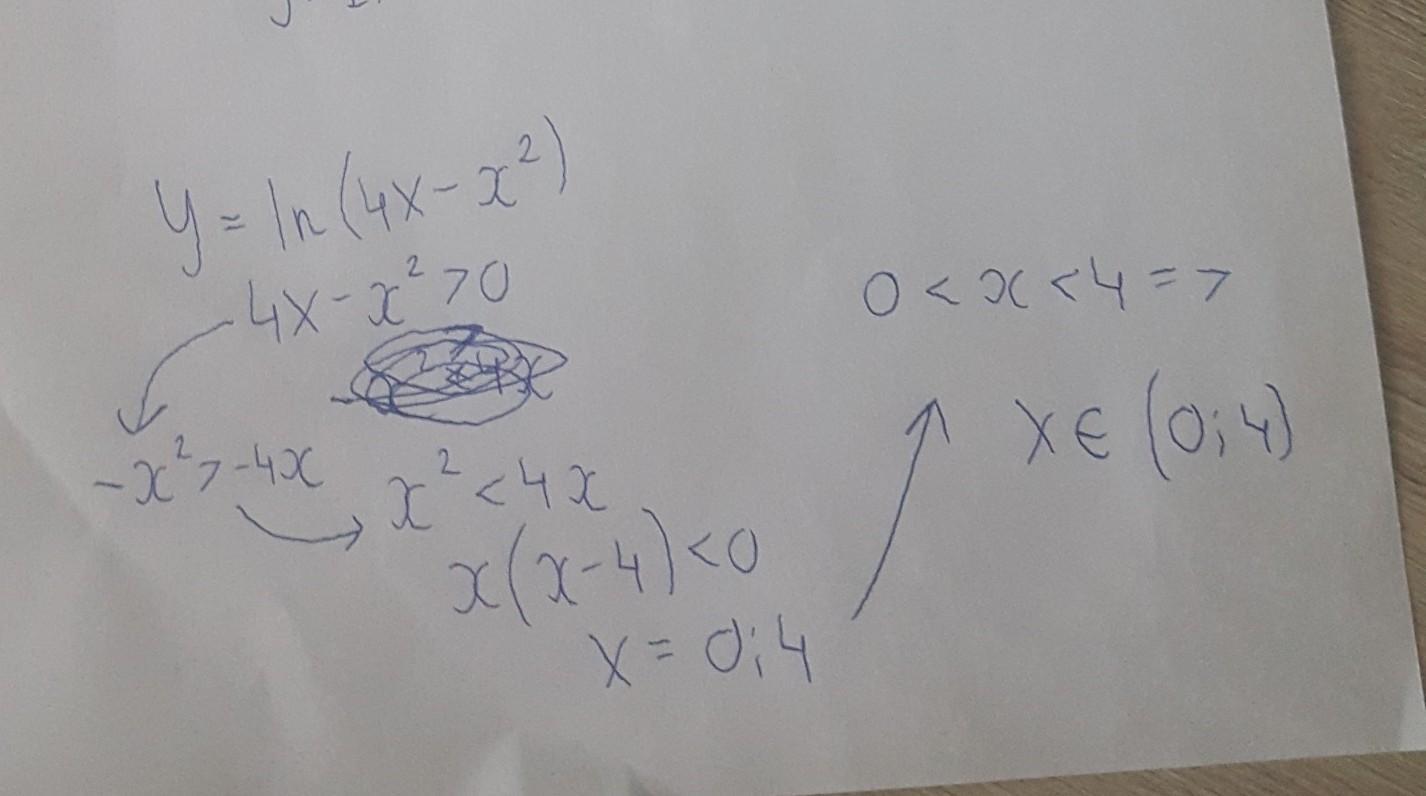 y = ln(4x - x²)
4x - x² > 0
-x² > -4x
x² < 4x
x(x-4) < 0
x = 0; 4
0 < x < 4 =>
x ∈ (0; 4)